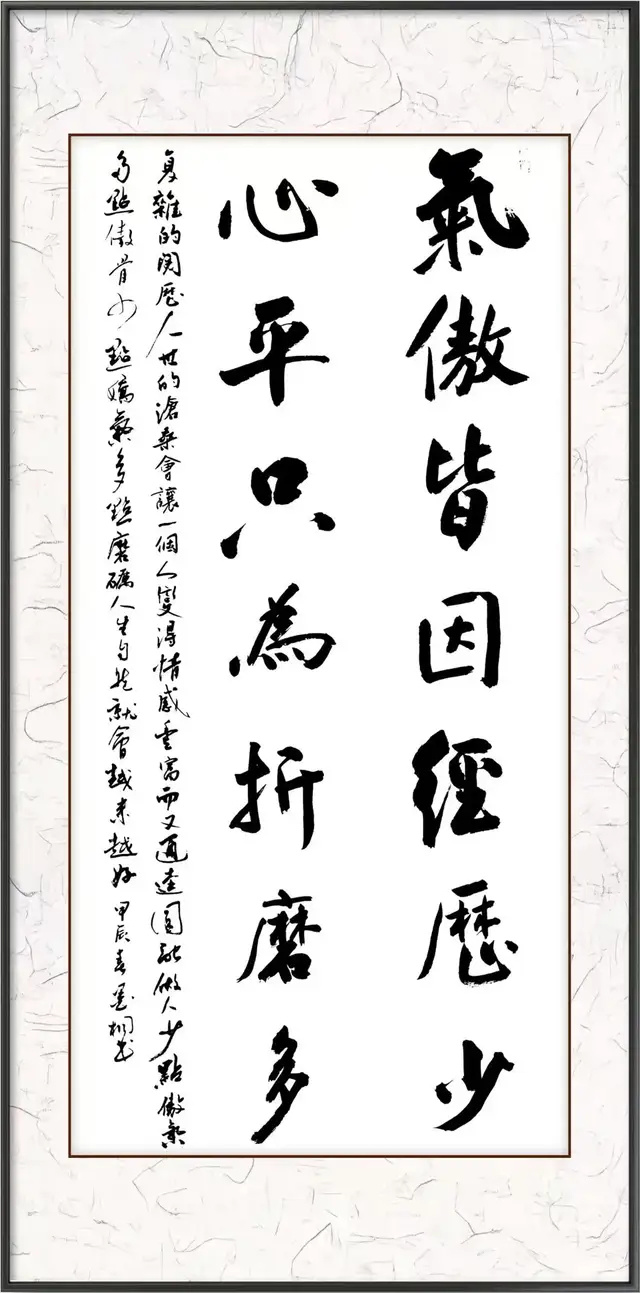 氣傲皆因經歷少
心平只為折磨多
复雜的閱歷人世的滄桑會讓一個人變得情感丰富而又通達圓融做人少點傲氣
多點傲骨少點嬌氣多點磨礪人生自然就會越來越好 甲辰春墨桐書